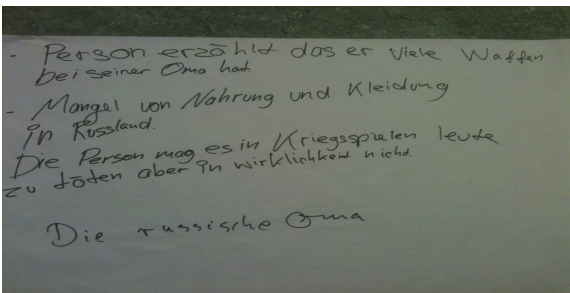 - Person erzählt das er viele Waffen
bei seiner Oma hat.
- Mangel von Nahrung und Kleidung
in Russland.
Die Person mag es in Kriegsspielen leute
zu töten aber in wirklichkeit nicht.
Die russische Oma